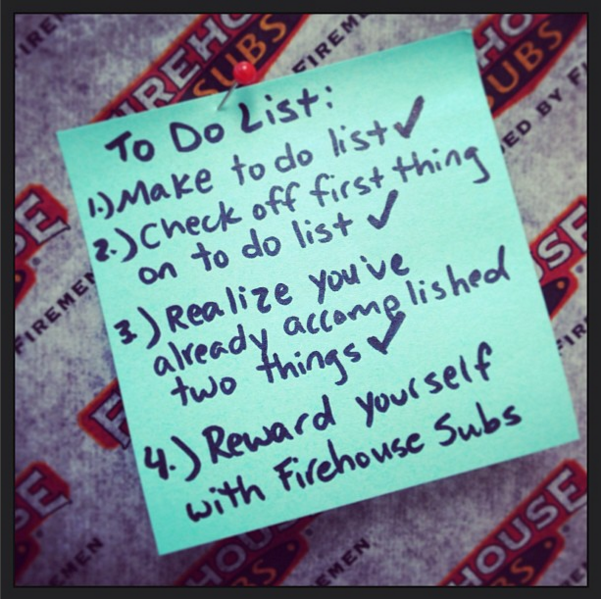 FIREHOUSE
SUBS
FIREMEN
HOUSE
SUBS
FOUNDED BY FI
To Do List:
1.) Make to do list ✓
2.) Check off first thing
on to do list ✓
3.) Realize you've
already accomplished
two things ✓
4.) Reward yourself
with Firehouse Subs
FIREMEN
HOUSE
SUBS
FIREMEN
HOUSE
SUBS